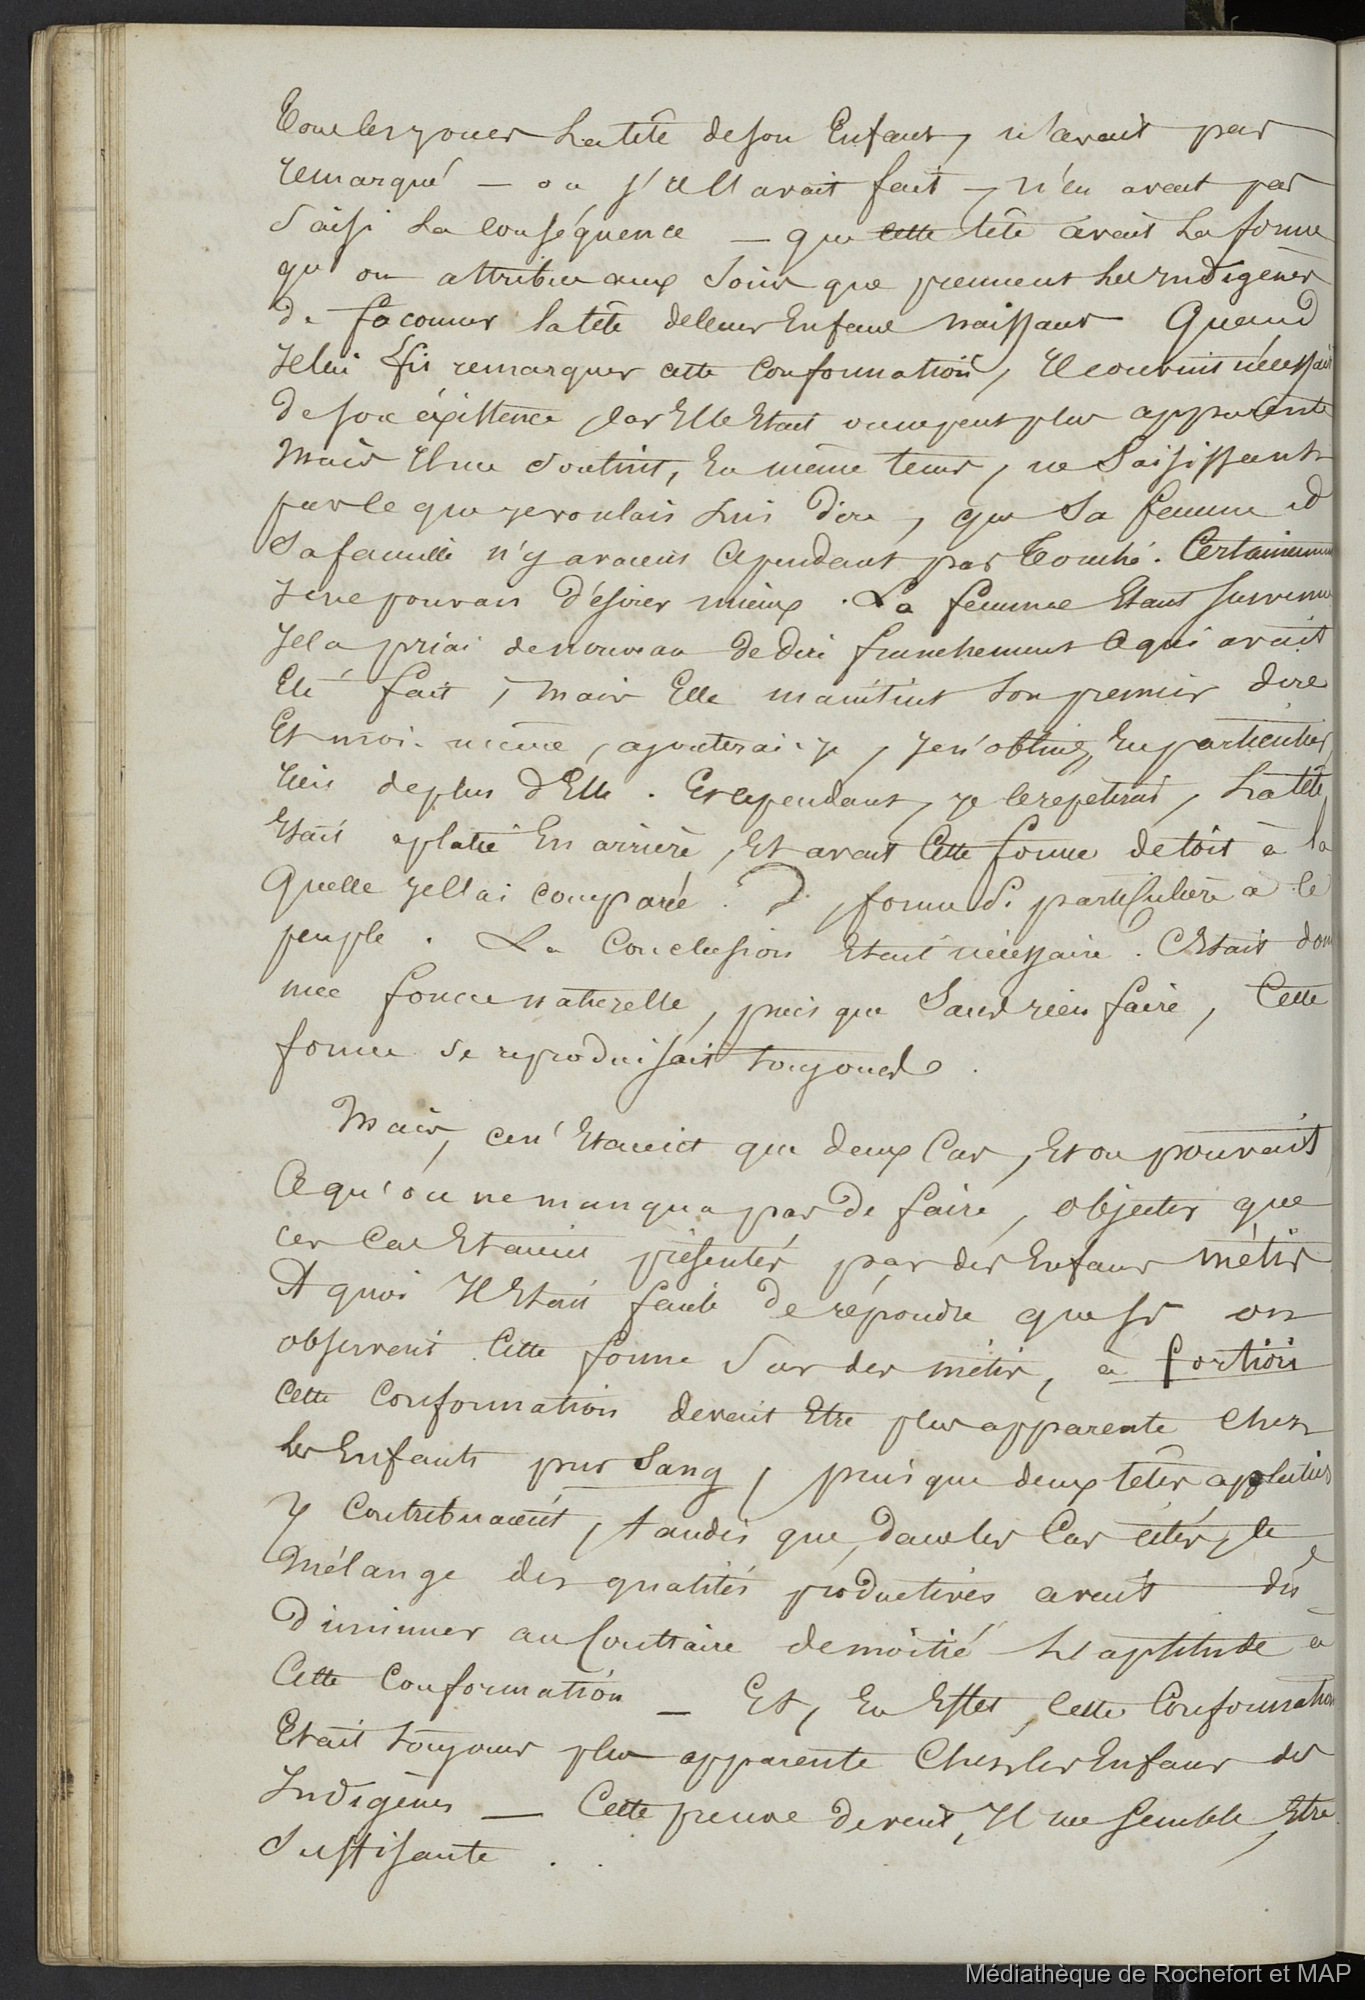 Tous les jours la tête de son Enfant, n'avait pas
remarqué — ou s'il l'avait fait —, n'en avait pas
saisi la conséquence — que cette tête avait la forme
qu'on attribue aux soins que prennent les Indigènes
de façonner la tête de leurs Enfans naissans. Quand
Je lui fis remarquer cette Conformation, Il convint
de son éxistence, car Elle Etait un peu plus apparente
Mais Il me soutint, En même tems, ne Saisissant
pas ce que je voulais lui dire, que Sa femme et
Sa famille n'y avaient Cependant pas touché. Certainement
Je ne pouvais désirer mieux. La femme Etant survenue
Je la priai de nouveau de dire franchement ce qui avait
Eté fait, mais Elle maintint son premier dire
Et moi-même, ajouterai-je, Je n'obtins, En particulier,
rien de plus d'Elle. Et cependant, je le répeterai, la tête
Etait aplatie En arrière, Et avait Cette forme de toit à la
quelle Je l'ai comparée. forme si particulière à ce
peuple. La Conclusion Etait nécessaire. C'Etait donc
une forme naturelle, puisque Sans rien faire, Cette
forme se reproduisait toujours.
Mais, ce n'Etaient que deux Cas, Et on pouvait
Ce qu'on ne manqua pas de faire, objecter que
ces Cas Etaient présentés par des Enfans métis
A quoi Il Etait facile de répondre que si on
observait Cette forme Sur des métis, à fortiori
cette Conformation devait Etre plus apparente chez
les Enfants pur Sang, puisque deux têtes applaties
y Contribuaient, tandis que, dans les Cas cités, le
mélange des qualités productives avait dû
Diminuer au Contraire de moitié l'aptitude à
Cette Conformation — Et, En Effet, Cette Conformation
Etait toujours plus apparente Chez les Enfans des
Indigènes — Cette preuve devait, Il me Semble, Etre
Suffisante.
Médiathèque de Rochefort et MAP